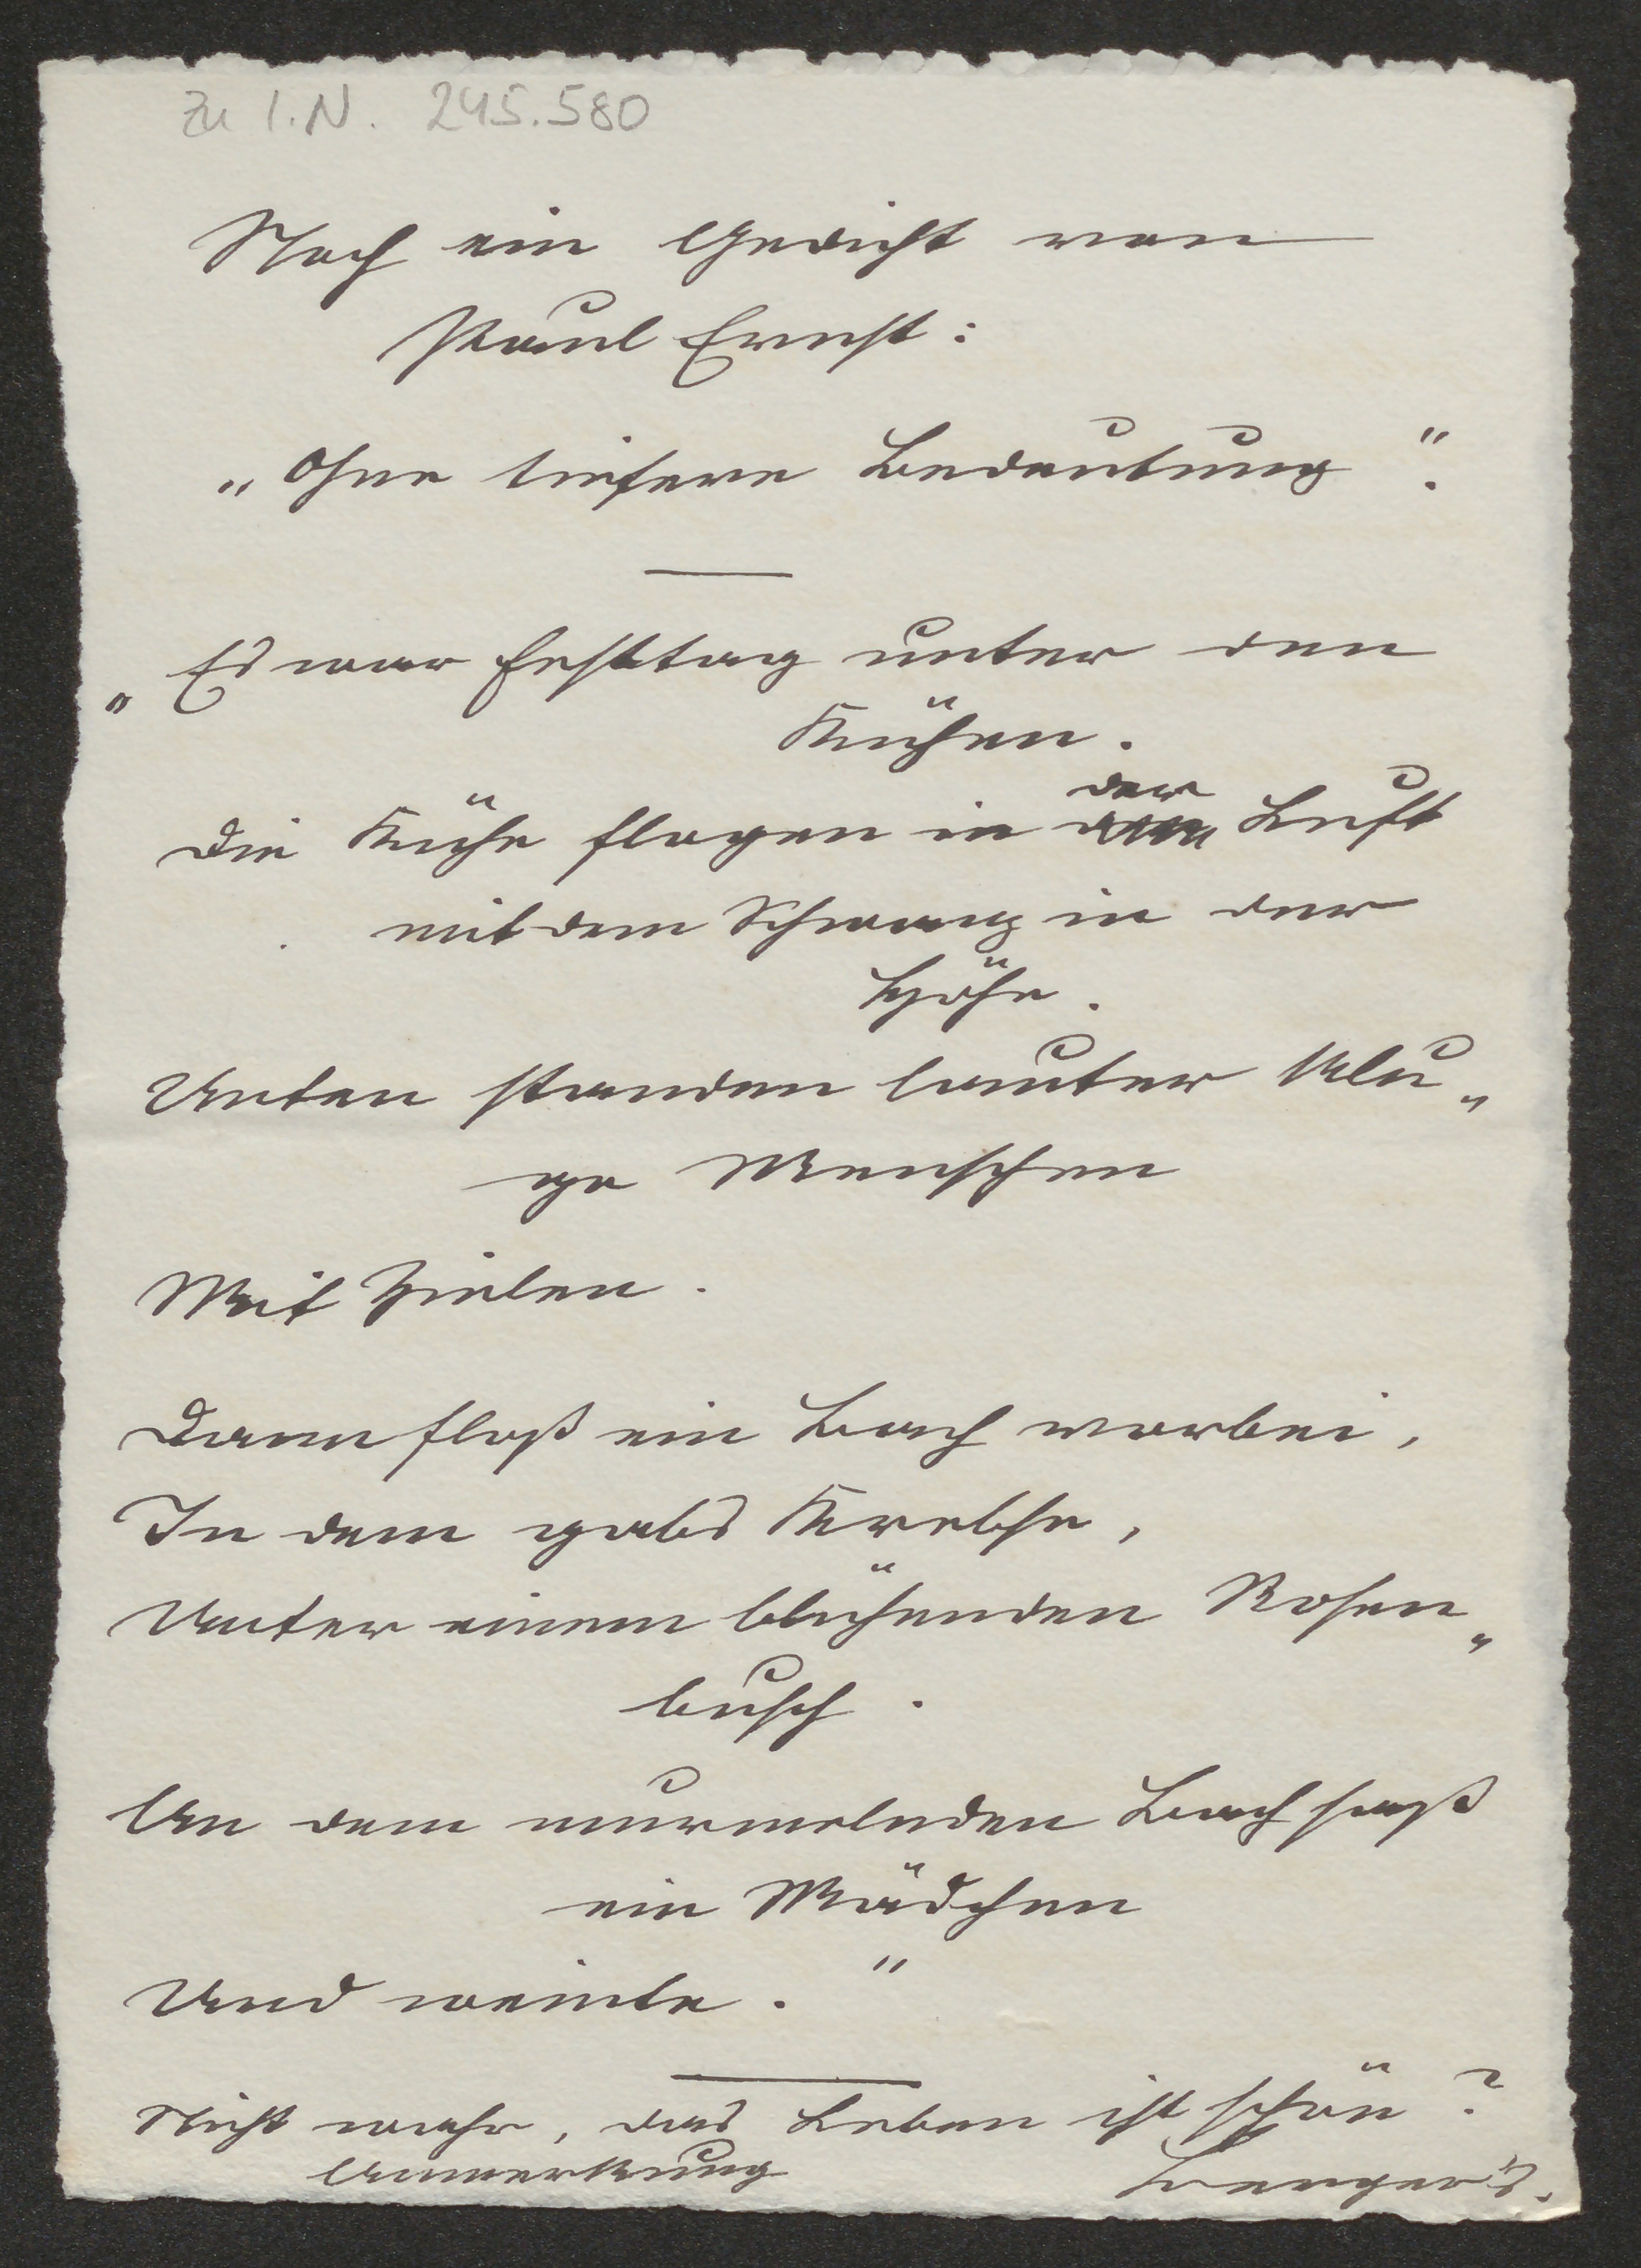 Zu I.N. 245.580
Noch ein Gedicht von
Paul Ernst:
„Ohne tiefere Bedeutung".
„Es war Festtag unter den
Kühen.
Die Kühe flogen in der Luft
mit dem Schwanz in der
Höhe.
Unten standen lauter klu„
ge Menschen
Mit Zielen.
Dann floß ein Bach vorbei,
In dem gabs Krebse,
Unter einem blühenden Rosen„
busch.
An dem murmelnden Bach saß
ein Mädchen
Und weinte."
Nicht wahr, das Leben ist schön?
Anmerkung